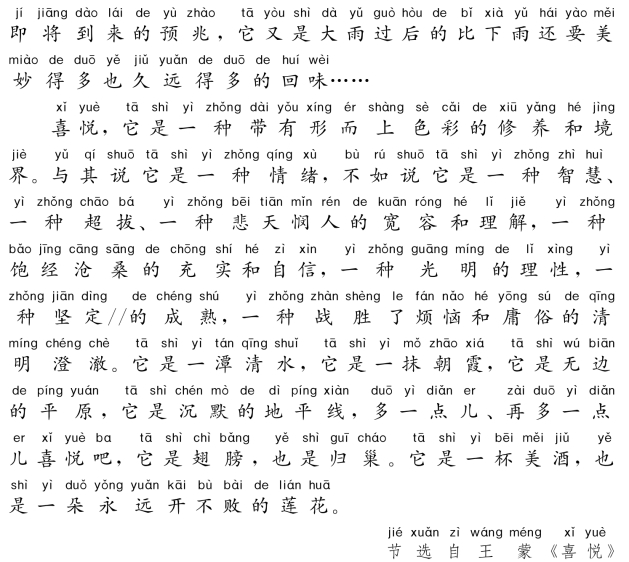 jí jiāng dào lái de yù zhào tā yòu shì dà yǔ guò hòu de bǐ xià yǔ hái yào měi
即将到来的预兆，它又是大雨过后的比下雨还要美
miào de duō yě jiǔ yuǎn de duō de huí wèi
妙得多也久远得多的回味……
xǐ yuè tā shì yì zhǒng dài yǒu xíng ér shàng sè cǎi de xiū yǎng hé jìng
喜悦，它是一种带有形而上色彩的修养和境
jiè yǔ qí shuō tā shì yì zhǒng qíng xù bù rú shuō tā shì yì zhǒng zhì huì
界。与其说它是一种情绪，不如说它是一种智慧、
yì zhǒng chāo bá yì zhǒng bēi tiān mǐn rén de kuān róng hé lǐ jiě yì zhǒng
一种超拔、一种悲天悯人的宽容和理解，一种
bǎo jīng cāng sāng de chōng shí hé zì xìn yì zhǒng guāng míng de lǐ xìng yí
饱经沧桑的充实和自信，一种光明的理性，一
zhǒng jiān dìng de chéng shú yì zhǒng zhàn shèng le fán nǎo hé yōng sú de qīng
种坚定//的成熟，一种战胜了烦恼和庸俗的清
míng chéng chè tā shì yì tán qīng shuǐ tā shì yì mǒ zhāo xiá tā shì wú biān
明澄澈。它是一潭清水，它是一抹朝霞，它是无边
de píng yuán tā shì chén mò de dì píng xiàn duō yì diǎn er zài duō yì diǎn
的平原，它是沉默的地平线，多一点儿、再多一点
er xǐ yuè ba tā shì chì bǎng yě shì guī cháo tā shì yì bēi měi jiǔ yě
儿喜悦吧，它是翅膀，也是归巢。它是一杯美酒，也
shì yì duǒ yǒng yuǎn kāi bù bài de lián huā
是一朵永远开不败的莲花。
jié xuǎn zì wáng méng xǐ yuè
节选自王蒙《喜悦》